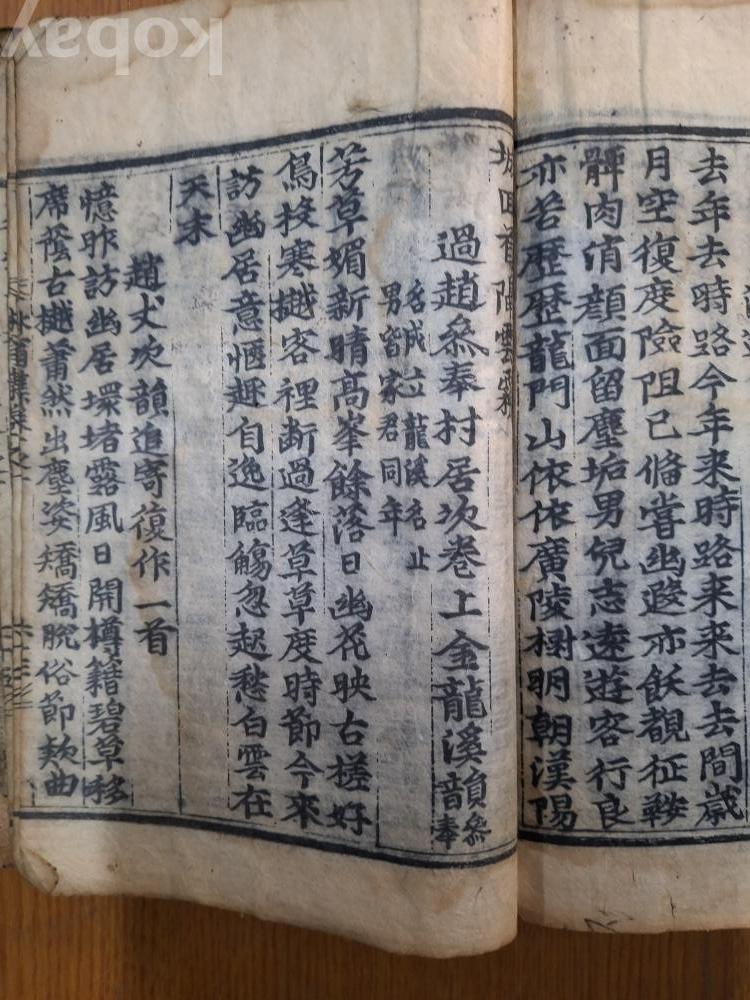 去年去時路今年来時路来来去去間歲
月空復度險阻已俻嘗幽遐亦飫覩征鞍
髀肉消顔面留塵垢男兒志遠遊客行良
亦苦歷歷龍門山依依廣陵樹明朝漢陽
城回首隔雲霧
過趙叅奉村居次卷上金龍溪韻叅奉
名成立龍溪名止
男皆家君同年
芳草媚新晴高峯餘落日幽花映古槎好
鳥投寒樾客裡断過逢草草度時節今来
訪幽居意愜趣自逸臨觴忽起愁白雲在
天末
趙丈次韻追寄復作一首
憶昨訪幽居環堵露風日開樽籍碧草移
席蔭古樾蕭然出塵姿矯矯脫俗節款曲
kobay